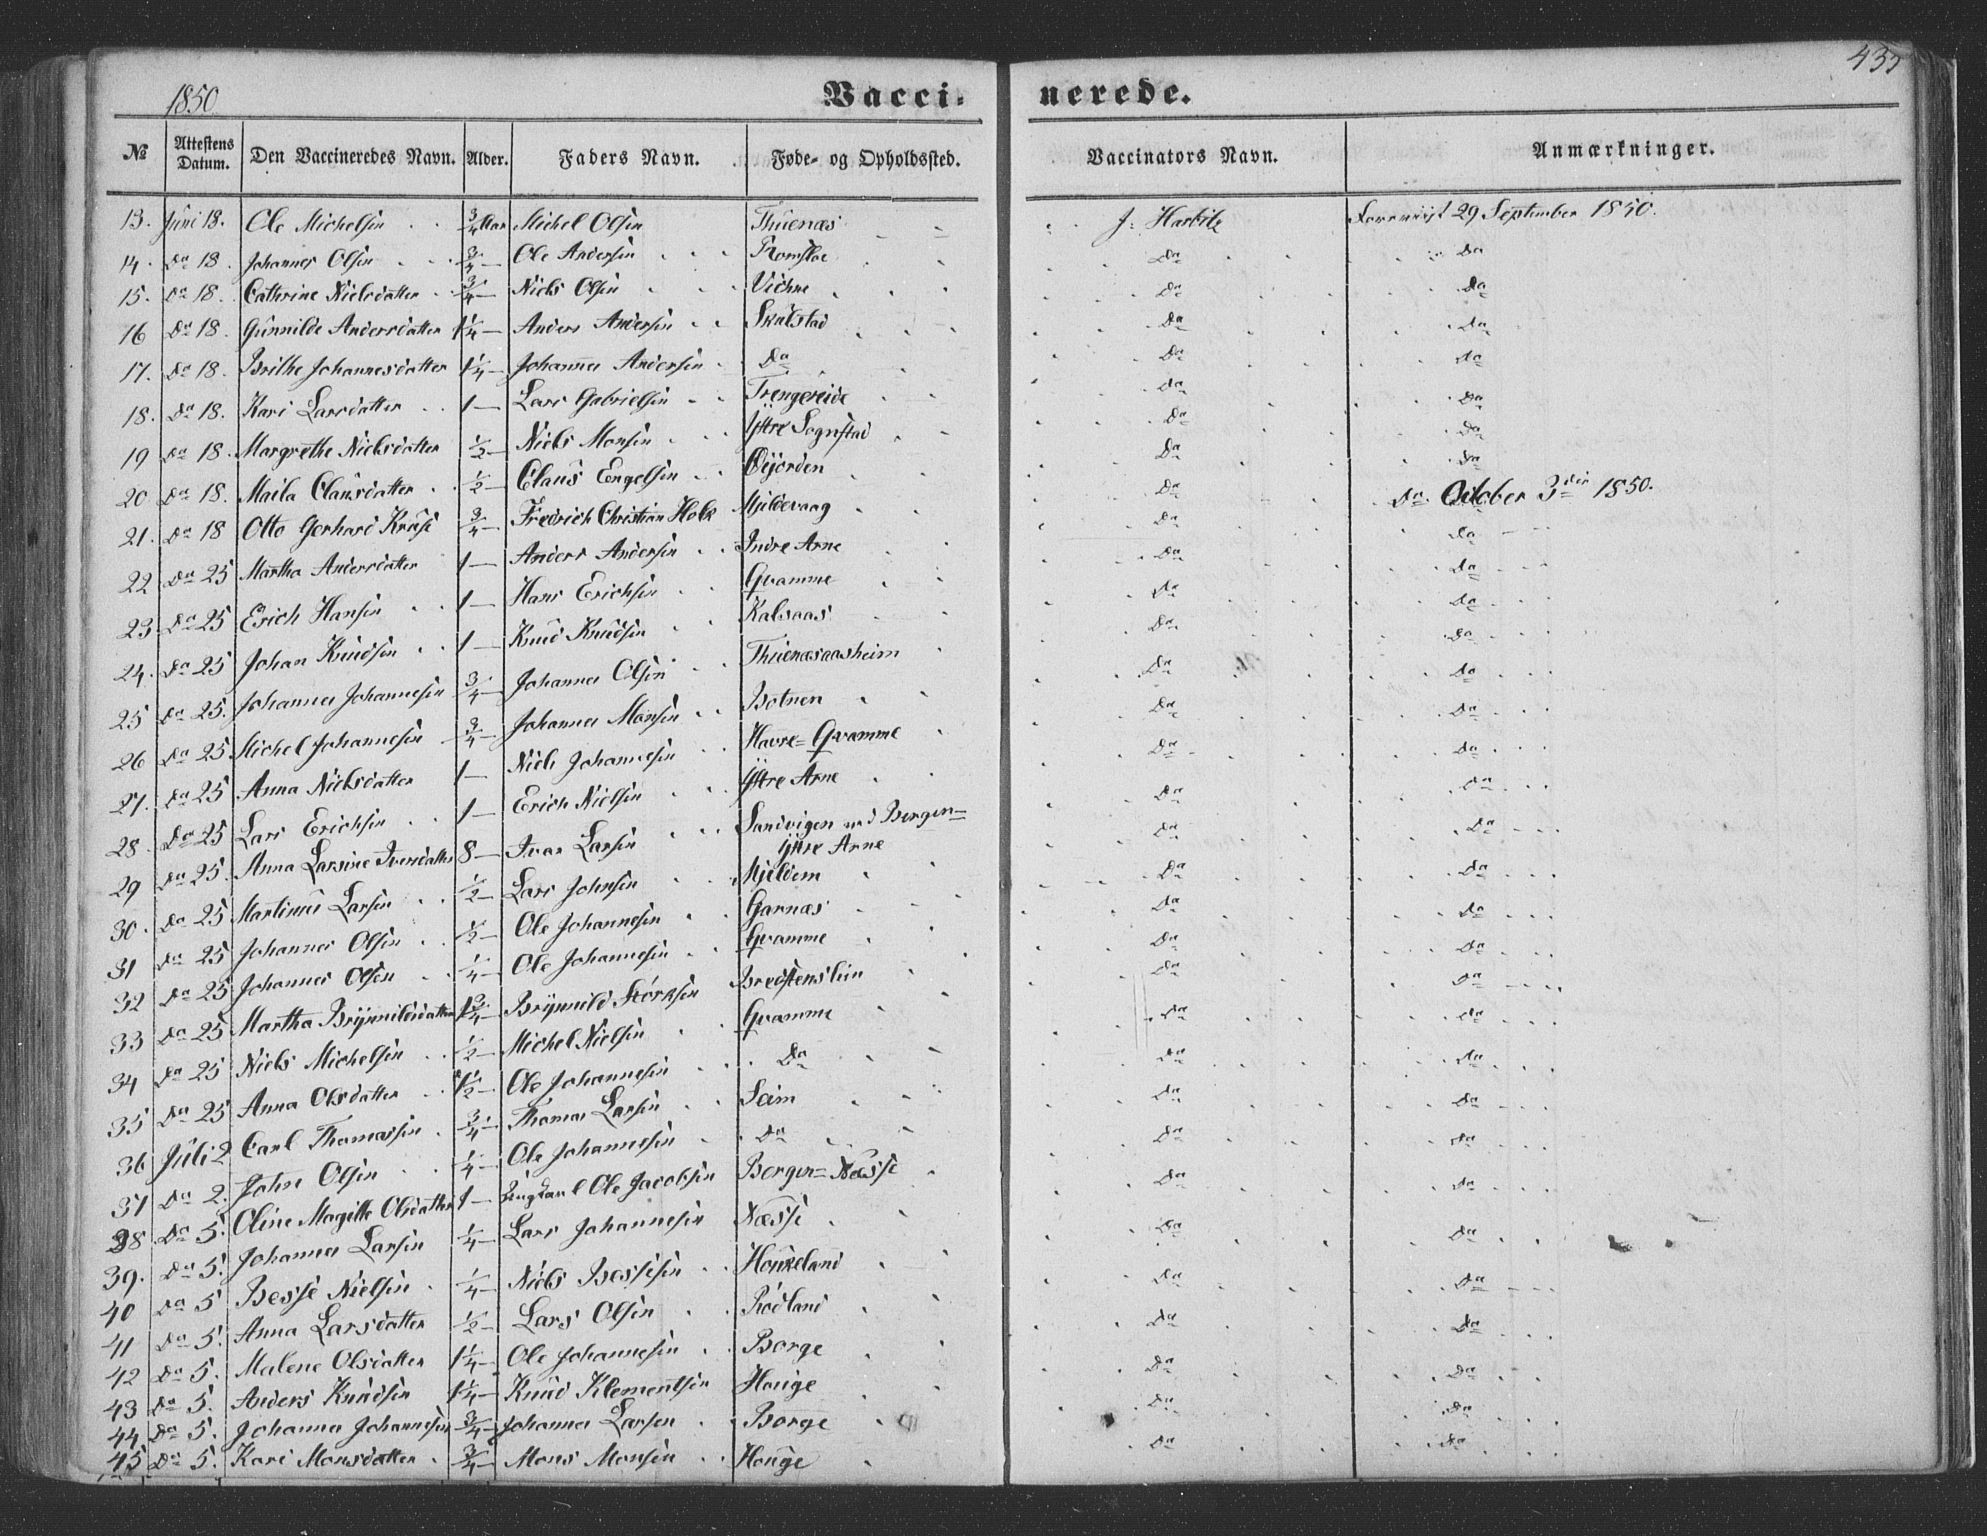 1850
Vacci- nerede.
435
№ Attestens Datum. Den Vaccineredes Navn. Alder. Faders Navn. Føde- og Opholdssted. Vaccinators Navn. Anmærkninger.
13. Juni 18. Ole Michelsen 3/4 Aar Michel Olsen Thuenæs J: Harbitz Foreviist 29 September 1850.
14. Do 18. Johannes Olsen 3/4 Ole Andersen Romsloe Do Do
15. Do 18. Cathrine Nielsdatter 3/4 Niels Olsen Vichne Do Do
16 Do 18. Gunnilde Andersdatter 1 1/4 Anders Andersen Skulstad Do Do
17. Do 18. Brithe Johannesdatter 1 1/4 Johannes Andersen Do Do Do
18. Do 18. Kari Larsdatter 1 Lars Gabrielsen Trengereide Do Do
19 Do 18. Margrethe Nielsdatter 1/2 Niels Monsen Yttre Sognstad Do Do
20 Do 18. Maila Clausdatter 1/2 Claus Engelsen Øijorden Do Do
21. Do 18 Otto Gerhard Kruse 3/4 Fredrich Christian Holk Mjeldevaag Do Do October 3die 1850.
22 Do 25 Martha Andersdatter 1 Anders Andersen Indre Arne Do Do
23 Do 25 Erich Hansen 1 Hans Erichsen Gvamme Do Do
24. Do 25 Johan Knudsen 1 Knud Knudsen Kalsaas Do Do
25 Do 25. Johannes Johannesen 3/4 Johannes Olsen Thuenæsaasheim Do Do
26 Do 25 Michel Johannesen 3/4 Johannes Monsen Botnen Do Do
27. Do 25 Anna Nielsdatter 1 Niels Johannesen Havre-Gvamme Do Do
28. Do 25 Lars Erichsen 1 Erich Nielsen Yttre Arne Do Do
29 Do 25. Anna Larsine Iversdatter 8 Ivar Larsen Sandvigen ved Bergen= Do Do
Yttre Arne
30. Do 25 Martinus Larsen 1/2 Lars Johnsen Mjeldem Do Do
31 Do 25 Johannes Olsen 1/2 Ole Johannesen Garnæs Do Do
32 Do 25 Johannes Olsen 1/4 Ole Johannesen Gvamme Do Do
33 Do 25 Martha Brynnildsdatter 1 3/4 Brynnild Størksen Bredstenslien Do Do
34 Do 25 Niels Michelsen 1/2 Michel Nielsen Gvamme Do Do
35 Do 25 Anna Olsdatter 1 1/2 Ole Johannesen Do Do Do
36 Juli 2 Carl Thomassen 3/4 Thomas Larsen Seim Do Do
37 Do 2. John Olsen 1/4 Ole Johannesen Do Do Do
38 Do 5. Oline Magitte Olsdatter 1 Ungkarl Ole Jacobsen Bergen=Næsse Do Do
39. Do 5. Johannes Larsen 1/4 Lars Johannesen Næsse Do Do
40 Do 5 Besse Nielsen 1/4 Niels Bessesen Houkeland Do Do
41 Do 5. Anna Larsdatter 1/2 Lars Olsen Rødland Do Do
42 Do 5. Malene Olsdatter 1 1/4 Ole Johannesen Borge Do Do
43 Do 5. Anders Knudsen 1 1/4 Knud Klementsen Houge Do Do
44 Do 5. Johannes Johannesen 3/4 Johannes Larsen Borge Do Do
45 Do 5. Kari Monsdatter 3/4 Mons Monsen Houge Do Do